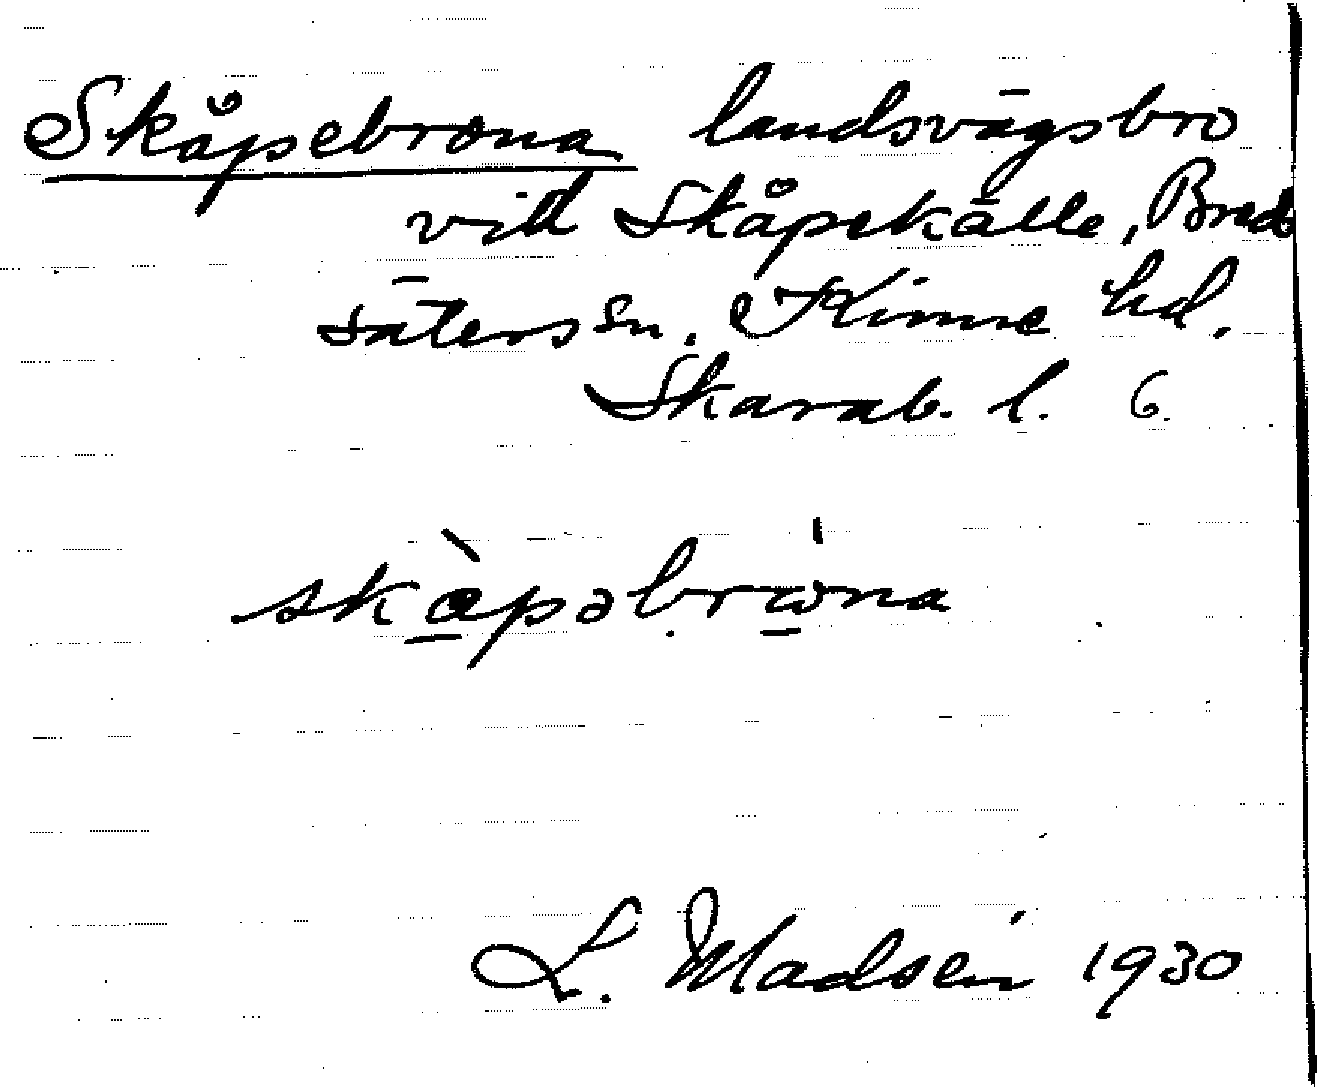 Skåpebrona landsvägsbro
vid Skåpekälle, Bred
säters sn. Kinne hd.
Skarab. l. 6.
skàpəbròna
L. Madsén 1930